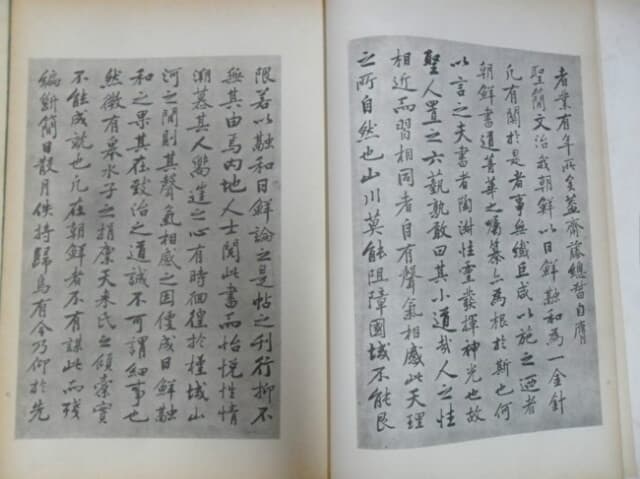 者業有年所矣蓋齋藤總督自膺
聖簡文治我朝鮮以日鮮融和爲一金針
凡有關於是者事無纖巨咸以施之迺者
朝鮮書道菁華之編纂亦爲根於斯也何
以言之夫書者陶淑性靈發揮神光也故
聖人置之六藝孰敢曰其小道哉人之性
相近而習相同者自有聲氣相感此天理
之所自然也山川莫能阻障國域不能艮
限若以融和日鮮論之是帖之刊行抑不
無其由焉內地人士閱此書而怡悅性情
溯慕其人寓遠之心有時徊徨於槿域山
河之間則其聲氣相感之因僅成日鮮融
和之果其在致治之道誠不可謂細事也
然微有粟水子之捐廩天來氏之傾橐實
不能成就也凡在朝鮮者不有謀此而殘
編斷簡日散月佚持歸烏有今乃仰於先